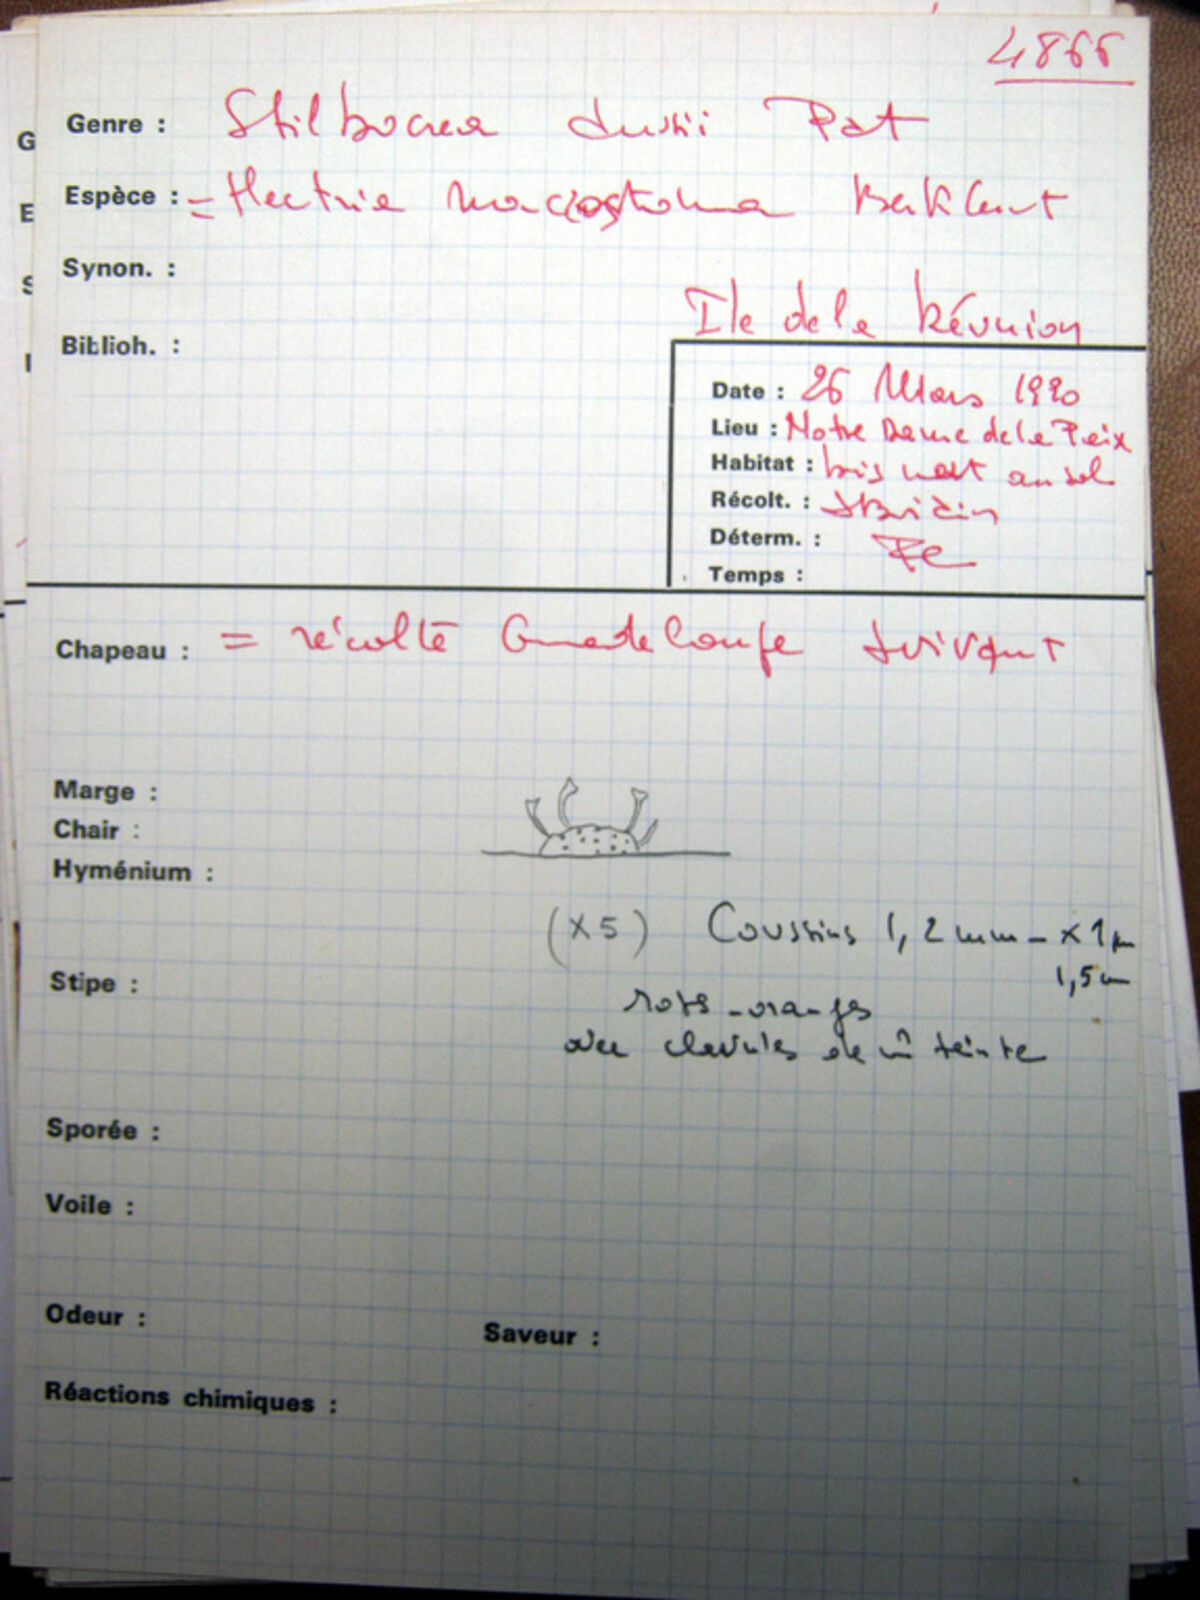 4866
Genre : Stilbocrea dussii Pat
Espèce : = Nectria macrostoma Berk Curt
Synon. :
Ile de la Réunion
Biblioh. :
Date : 26 Mars 1990
Lieu : Notre Dame de la Paix
Habitat : bois mort au sol
Récolt. :
Déterm. :
Temps :
Chapeau : = récolte Guadeloupe suivant
Marge :
Chair :
Hyménium :
(x5) Coussins 1,2 mm - x 1
1,5
Stipe :
rose-orangés
avec clavules de m̂ teinte
Sporée :
Voile :
Odeur :
Saveur :
Réactions chimiques :
G
E
S